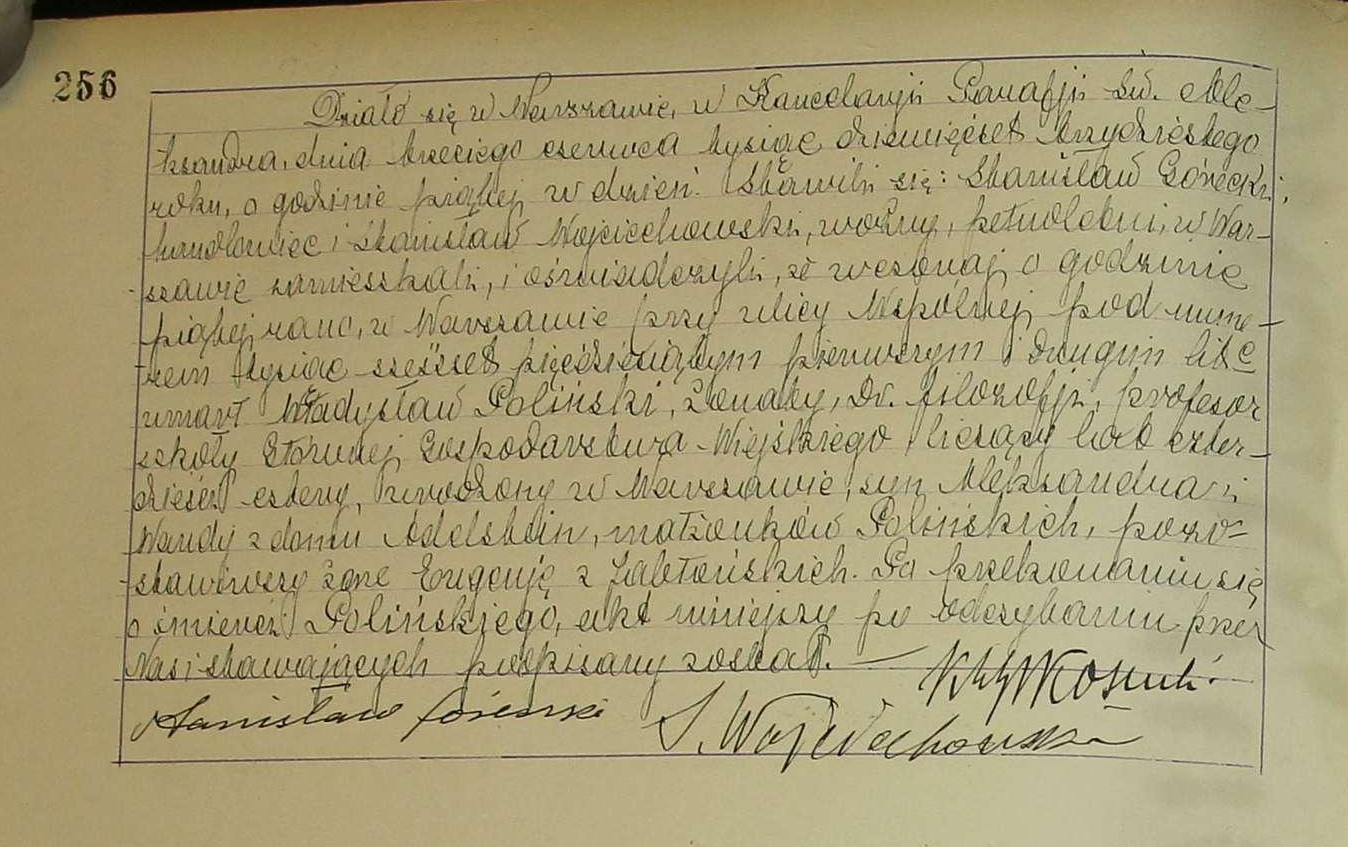 256
Działo się w Warszawie, w Kancelaryi Parafji Św. Ale-
ksandra, dnia trzeciego czerwca tysiąc dziewięćset trzydziestego
roku, o godzinie piątej w dzień. Stawili się: Stanisław Górecki,
i Stanisław Wojciechowski, woźny, pełnoletni, w War-
szawie zamieszkali, i oświadczyli, że wczoraj o godzinie
piątej rano, w Warszawie przy ulicy Wspólnej pod nume-
rem tysiąc sześćset pięćdziesiątym pierwszym i drugim lit. c
umarł Władysław Poliński, żonaty, Dr. filozofji, profesor
szkoły Głównej Gospodarstwa Wiejskiego liczący lat czter-
dzieści cztery, urodzony w Warszawie, syn Aleksandra i
Wandy z domu Adelstein, małżonków Polińskich, pozo-
stawiwszy żonę Eugenję z Po przekonaniu się
o śmierci Polińskiego, akt niniejszy po odczytaniu przez
Nas i stawających podpisany został.
Stanisław Górecki S. Wojciechowski